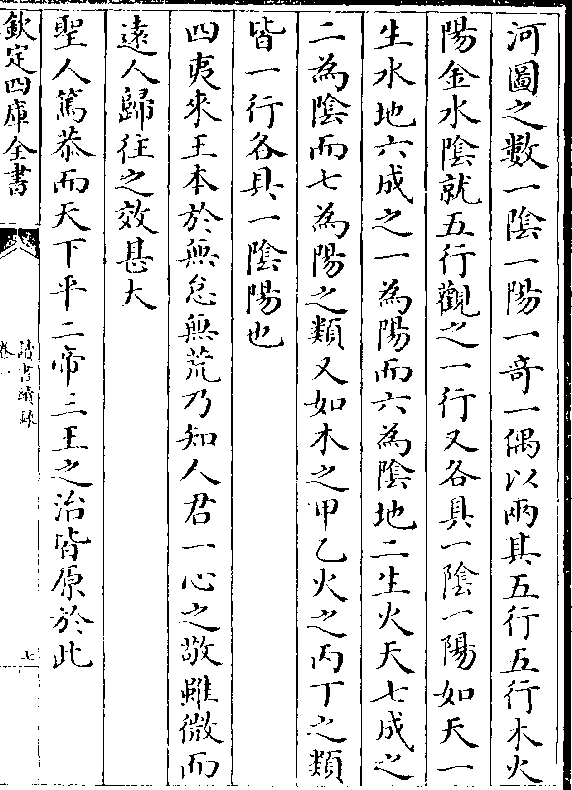 河圖之數一陰一陽一竒一偶以兩其五行五行木火
陽金水陰就五行觀之一行又各具一陰一陽如天一
生水地六成之一為陽而六為陰地二生火天七成之
二為陰而七為陽之類又如木之甲乙火之丙丁之類
皆一行各具一陰陽也
四夷來王本於無怠無荒乃知人君一心之敬雖微而
遠人歸往之效甚大
聖人篤恭而天下平二帝三王之治皆原於此
欽定四庫全書
讀書續錄
卷一
七